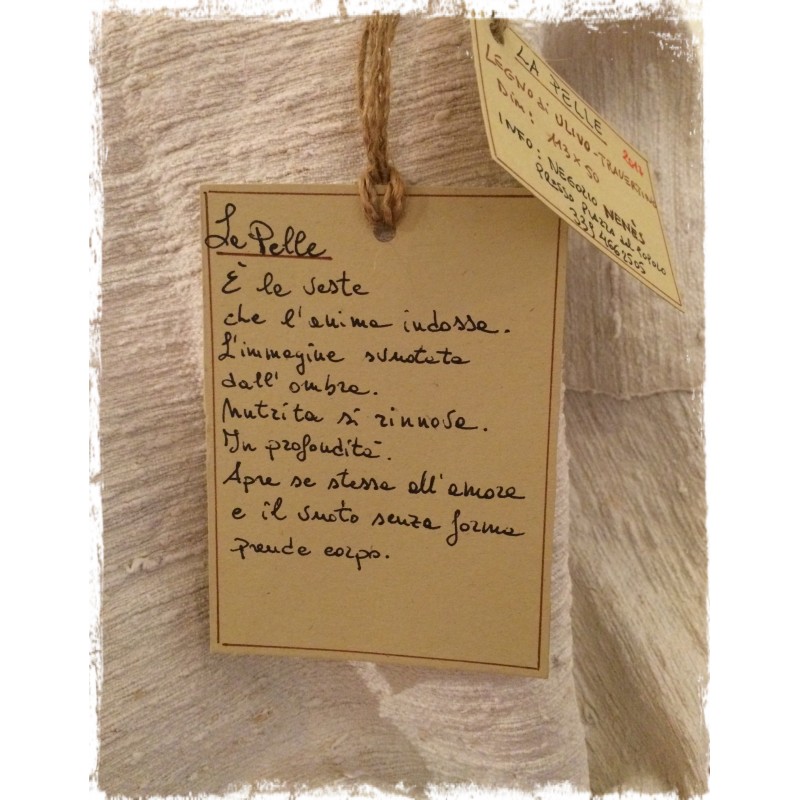 La Pelle
È la veste
che l'anima indossa.
L'immagine svuotata
dall'ombra.
Nutrita si rinnova.
In profondità.
Apre se stessa all'amore
e il vuoto senza forma
prende corpo.
LA PELLE
LEGNO di ULIVO - TRAVERTINO
Dim: 113 x 50
2013
INFO: NEGOZIO NENÈS
PRESSO PIAZZA del POPOLO
339 4662505